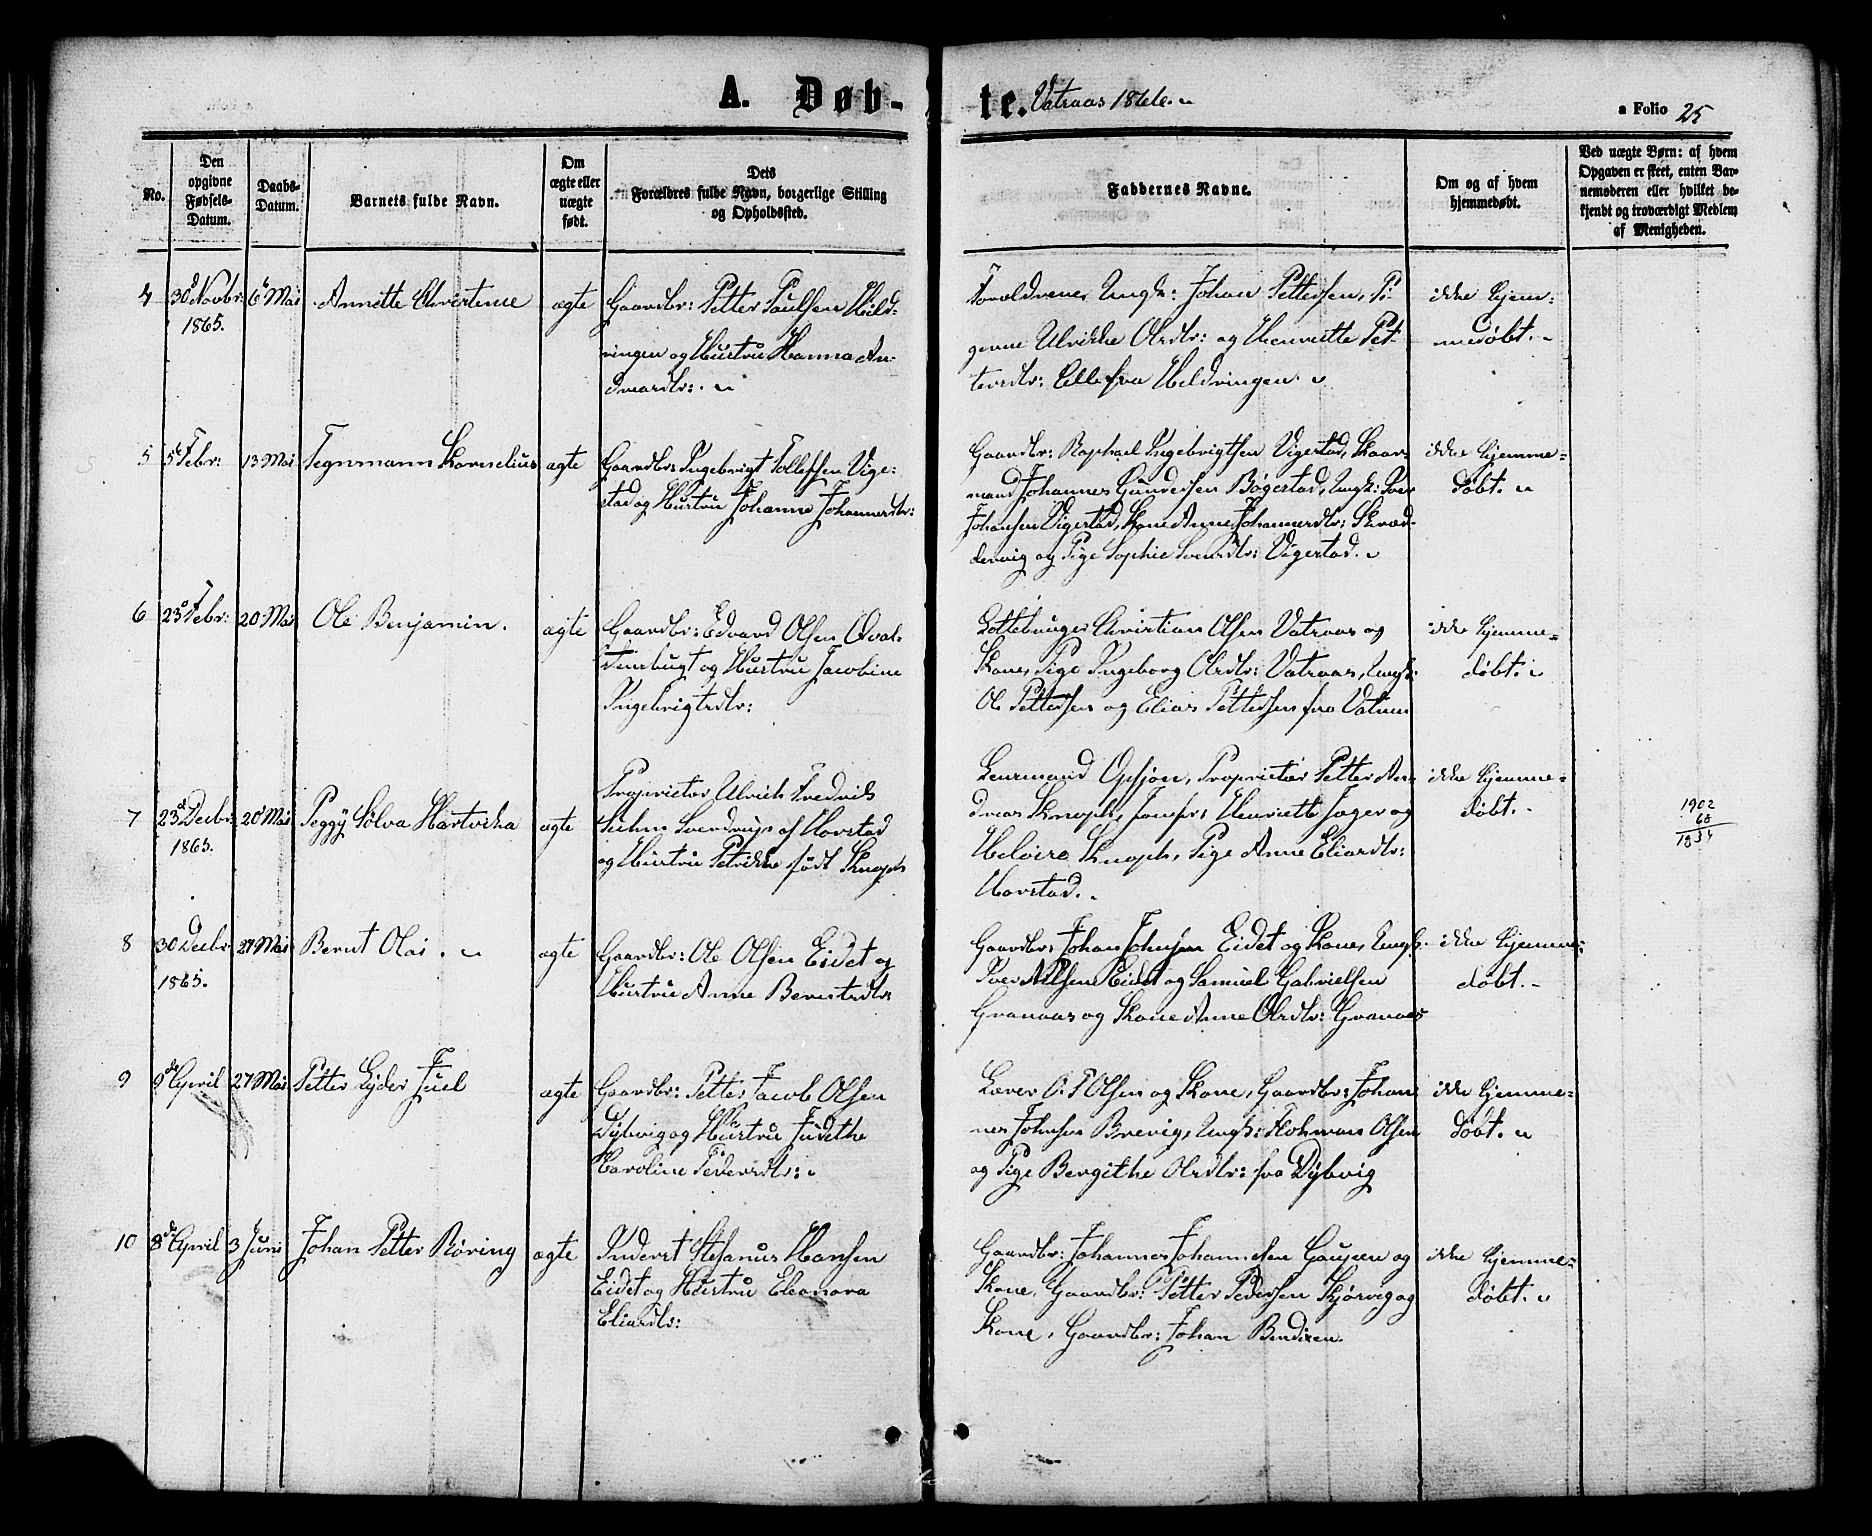 A. Døb-te. Vatraas 1866.
a Folio 25
No.
Den
opgivne
Fødsels-
Datum.
Daabs-
Datum.
Barnets fulde Navn.
Om
ægte eller
uægte
født.
Dets
Forældres fulde Navn, borgerlige Stilling
og Opholdssted.
Faddernes Navne.
Om og af hvem
hjemmedøbt.
Ved uægte Børn: af hvem
Opgaven er skeet, enten Bar-
nemoderen eller hvilket be-
kjendt og troværdigt Medlem
af Menigheden.
4
30 Novbr:
1865.
6 Mai
Annette
ægte
Gaardbr: Petter Paulsen Hild-
ringen og Hustru Hanna An-
dreasdtr:
Forældrene, Ungk: Johan Pettersen, Pi-
gerne Ulrikke Olsdtr: og Henriette Pet-
tersdtr: Alle fra Hildringen
ikke hjem-
medøbt.
5
5 Febr:
13 Mai
Tegnmann Kornelius
ægte
Gaardbr: Ingebrigt Tollefsen Vige-
stad og Hustru Johanna Johannesdtr:
Gaardbr: Raphael Ingebrigtsen Vigestad, Kaar-
mand Johannes Gundersen Bøgestad, Ungk: Iver
Johansen Vigestad, Kone Anne Johannesdtr: Skræd-
dervig og Pige Sophie Svendtr: Vigestad.
ikke hjemme-
døbt.
6
23 Febr:
20 Mai
Ole Benjamin.
ægte
Gaardbr: Edvard Olsen Qval-
fiurbugt og Hustru Jacobine
Ingebrigtsdtr:
Christian Olsen Vatraas og
Kone, Pige Ingeborg Olsdtr: Vatraas, Ungk:
Ole Pettersen og Elias Pettersen fra
ikke hjemme-
døbt.
7
23 Decbr:
1865.
20 Mai
Peggy Sølva Hartvika
ægte
Proprietær Ulrich Fredrik
Suhm Svendrup af Horstad
og Hustru Petrikke født Knoph
Lensmand Opsjøn, Proprietær Petter An-
dreas Knoph, Jomfr: Henriette Jager og
Heloise Knoph, Pige Anne Eliasdtr:
Horstad.
ikke hjemme-
døbt.
1902
68
1834
8
30 Decbr
1865.
27 Mai
Bernt Olai.
ægte
Gaardbr: Ole Olsen Eidet og
Hustru Anne Berntsdtr
Gaardbr: Johan Johnsen Eidet og Kone, Ungk:
Iver Nilsen Eidet og Samuel Gabrielsen
Granaas og Kone Anne Olsdtr: Granaas
ikke hjemme-
døbt.
9
9 April
27 Mai
Petter Lyder Juel
ægte
Gaardbr: Petter Jacob Olsen
Dybvig og Hustru Judithe
Karoline Pedersdtr:
Lærer O: P Olsen og Kone, Gaardbr: Johan-
nes Johnsen Brevig, Ungk: Olsen
og Pige Bergithe Olsdtr: fra Dybvig
ikke hjemme-
døbt.
10
8 April
3 Juni
Johan Petter Røring
ægte
Inderst Stefanus Hansen
Eidet og Hustru Eleonora
Eliasdtr:
Gaardbr: Johannes Johannesen og
Kone, Gaardbr: Petter Pedersen Skjørvig og
Kone, Gaardbr: Johan Bendixen.
ikke hjemme-
døbt.